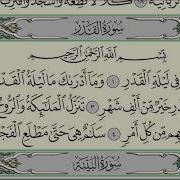 كَلَّا لَا تُطِعْهُ وَٱسْجُدْ وَٱقْتَرِب
سُورَةُ القَدْرِ
بِسْمِ ٱللَّهِ ٱلرَّحْمَٰنِ ٱلرَّحِيمِ
فِى لَيْلَةِ ٱلْقَدْرِ ١ وَمَآ أَدْرَىٰكَ مَا لَيْلَةُ ٱلْقَد
رِ خَيْرٌ مِّنْ أَلْفِ شَهْرٍ ٣ تَنَزَّلُ ٱلْمَلَٰٓئِكَةُ وَٱلرُّو
هِم مِّن كُلِّ أَمْرٍ ٤ سَلَٰمٌ هِىَ حَتَّىٰ مَطْلَعِ ٱلْفَجْ
سُورَةُ البَيِّنَةِ